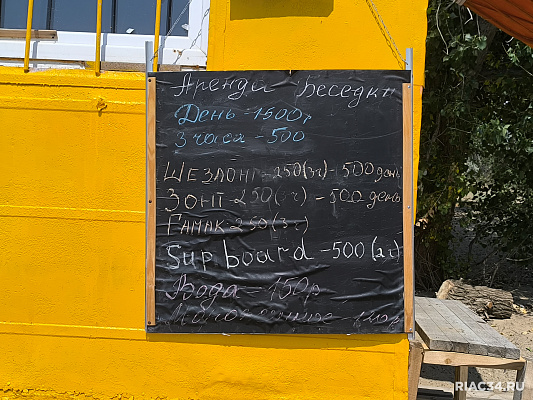 Аренда беседки
День - 1500р
3 часа - 500
Шезлонг - 250(3ч) - 500 день
Зонт - 250(3ч) - 500 день
Гамак - 250(3ч)
Sup board - 500(2ч)
Вода - 150р
RIAC34.RU